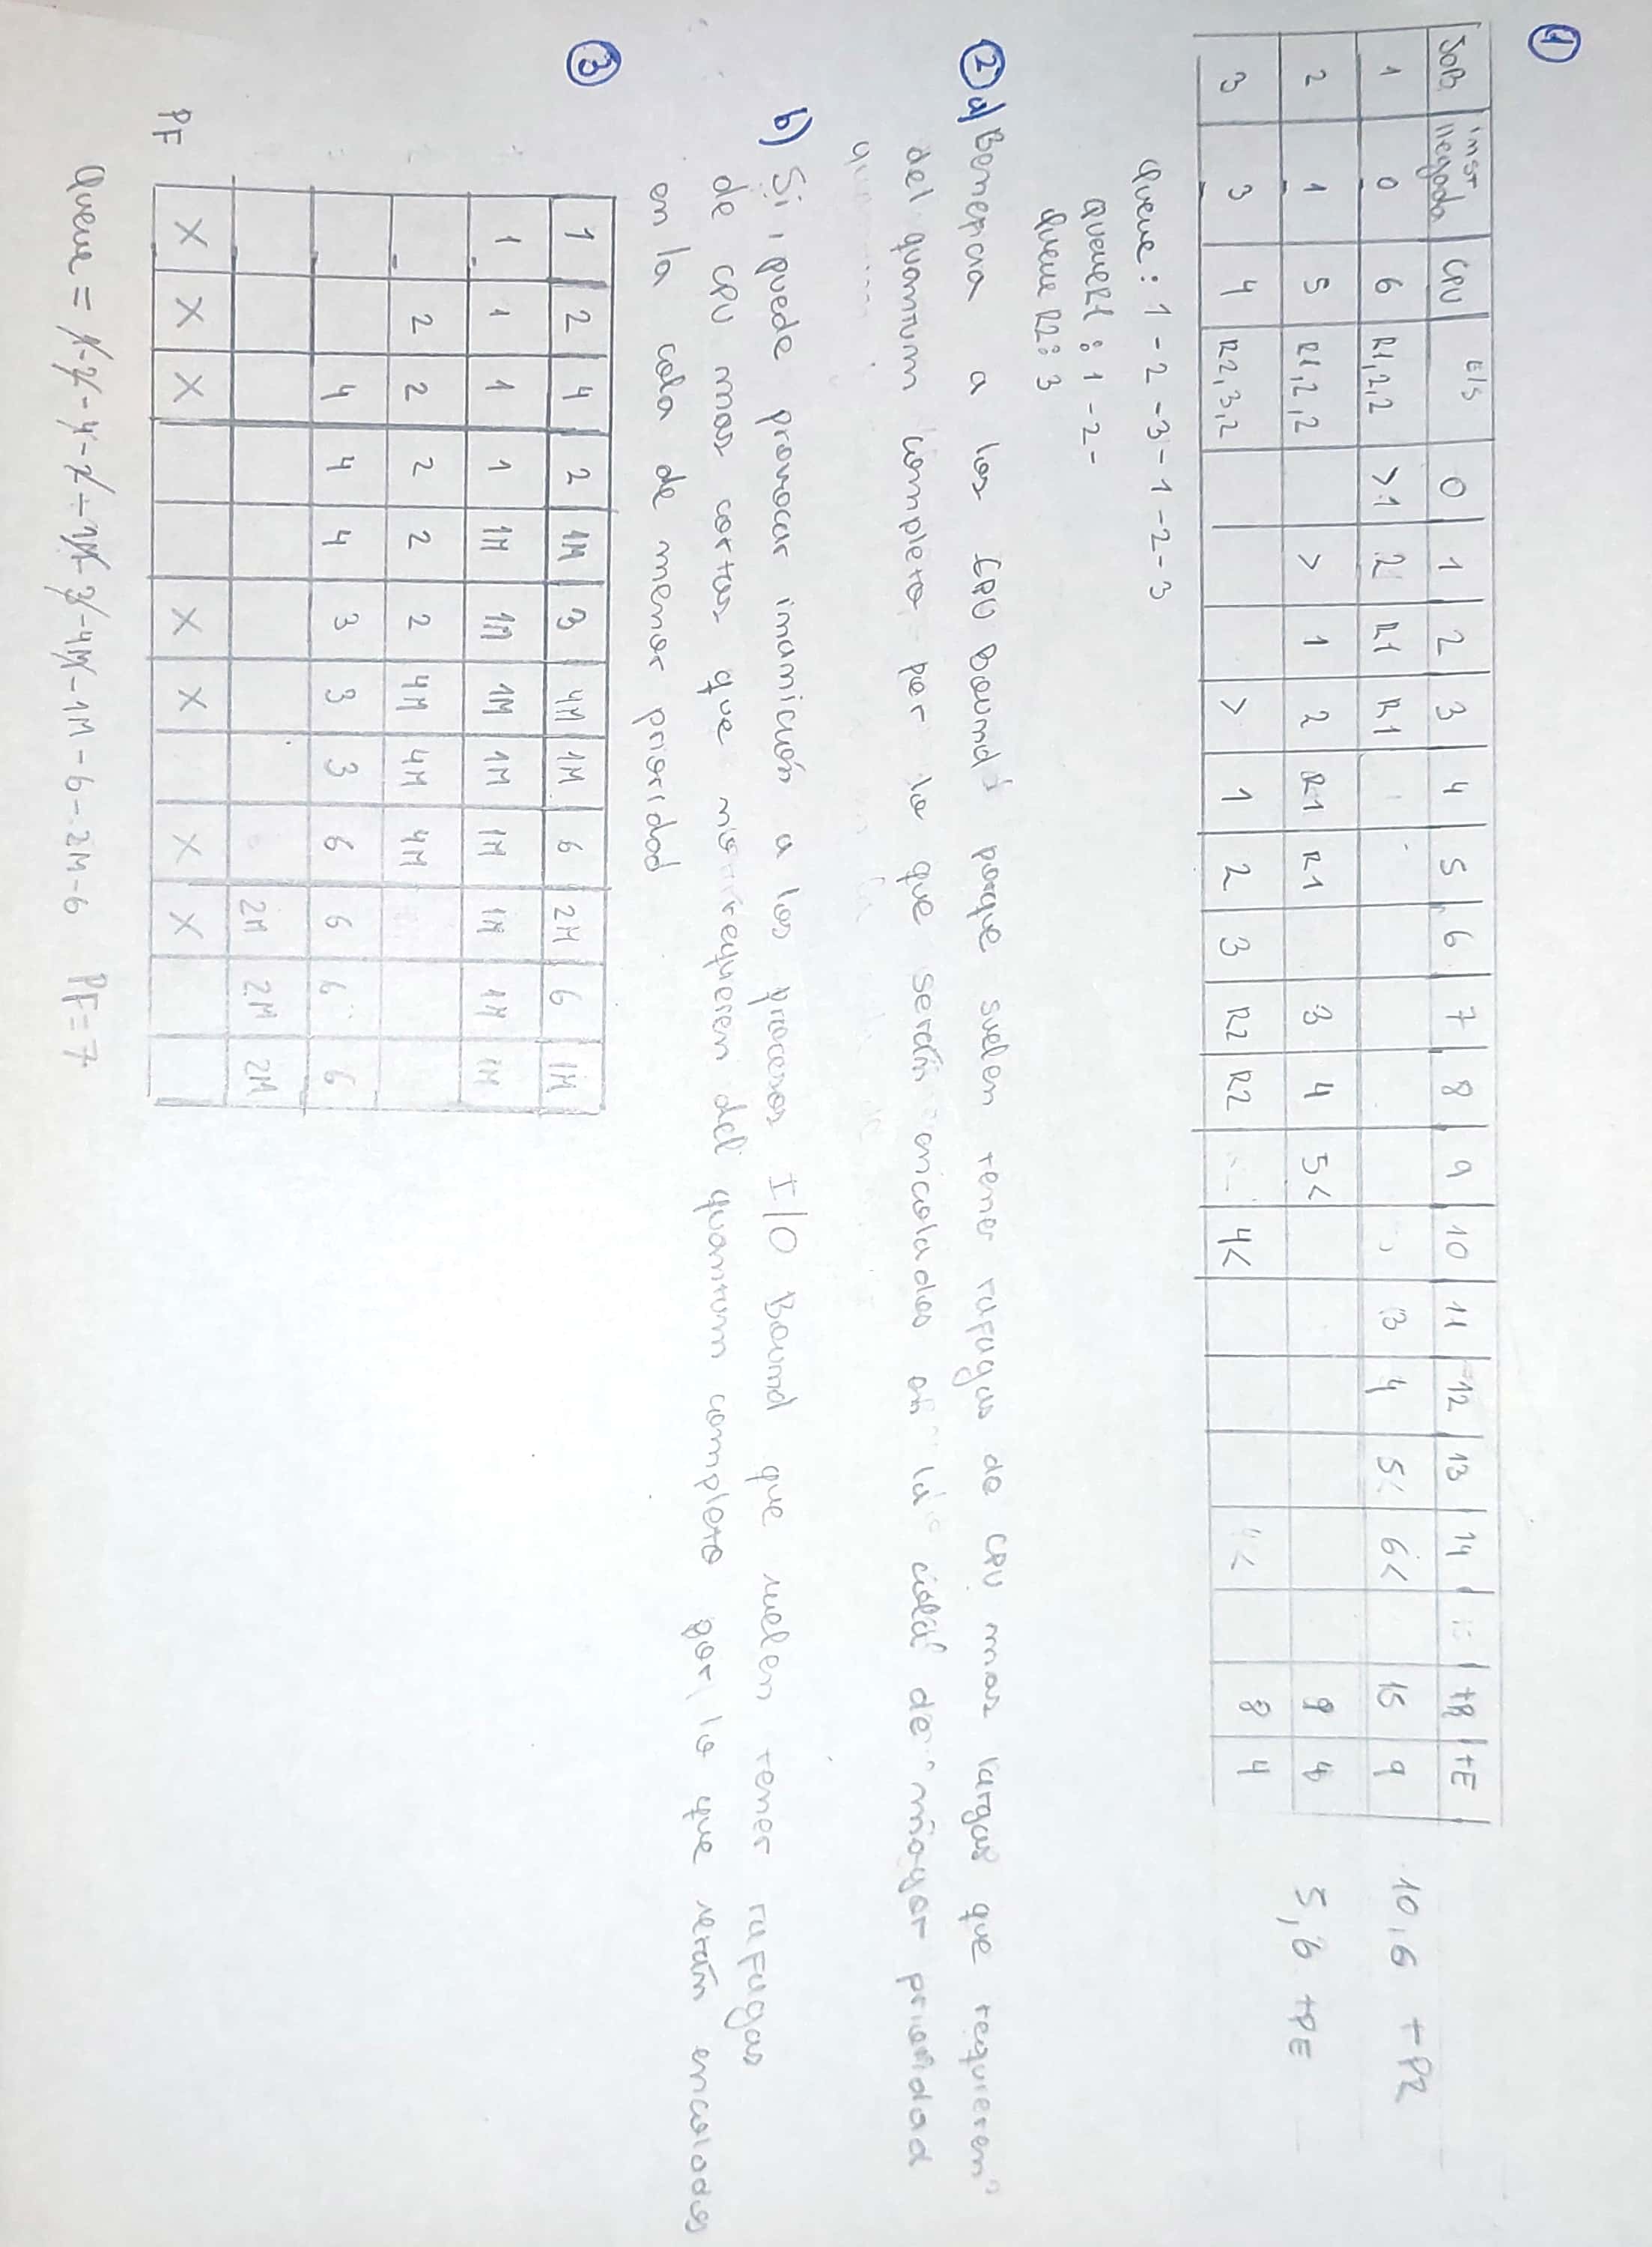 1
JOB inst llegada CPU E/S 0 1 2 3 4 5 6 7 8 9 10 11 12 13 14 tR tE
1 0 6 R1,2,2 >1 2 R1 R1 3 4 5< 6< 15 9
2 1 5 R1,2,2 > 1 2 R1 R1 3 4 5< 9 4
3 3 4 R2,3,2 > 1 2 3 R2 R2 4< 8 4
10,6 tPR
5,6 tPE
Queue: 1-2-3-1-2-3
QueueR1: 1-2-
Queue R2: 3
2 a) Benericia a los CPU Bound porque suelen tener rafagas de CPU mas largas que requieren
del quantum completo por lo que serán encolados en la cola de mayor prioridad
b) Si, puede provocar inanición a los procesos I/O Bound que suelen tener rafagas
de CPU mas cortas que no requieren del quantum completo por lo que serán encolados
en la cola de menor prioridad
3
1 2 4 2 1M 3 4M 1M 6 2M 6 1M
1 1 1 1 1M 1M 1M 1M 1M 1M 1M 1M
2 2 2 2 2 4M 4M 4M
4 4 4 3 3 3 6 6 6 6
2M 2M 2M
PF X X X X X X X
Queue = 1-2-4-2-1M-3-4M-1M-6-2M-6 PF=7